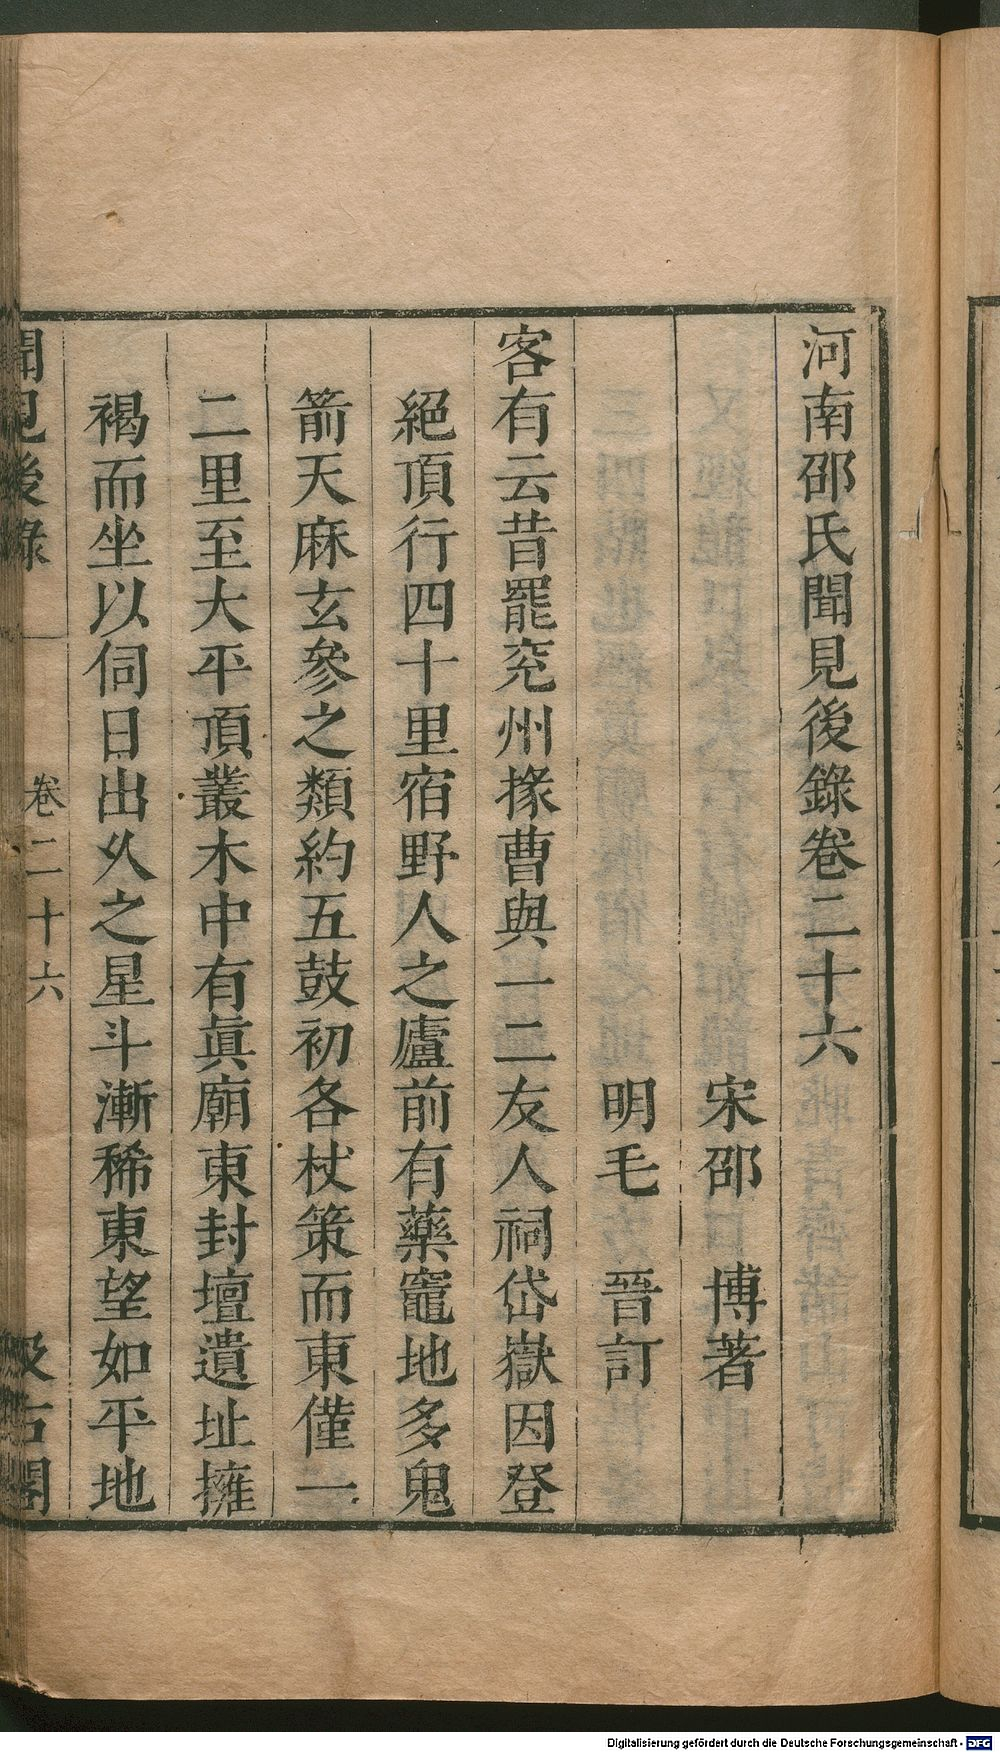 河南邵氏聞見後錄卷二十六
宋邵　博著
明毛　晉訂
客有云昔罷兖州掾曹與一二友人祠岱嶽因登
絕頂行四十里宿野人之廬前有藥竈地多鬼
箭天麻玄參之類約五鼓初各杖策而東僅一
二里至大平頂叢木中有眞廟東封壇遺址擁
褐而坐以伺日出久之星斗漸稀東望如平地
聞見後錄
卷二十六
汲古閣
Digitalisierung gefördert durch die Deutsche Forschungsgemeinschaft - DFG